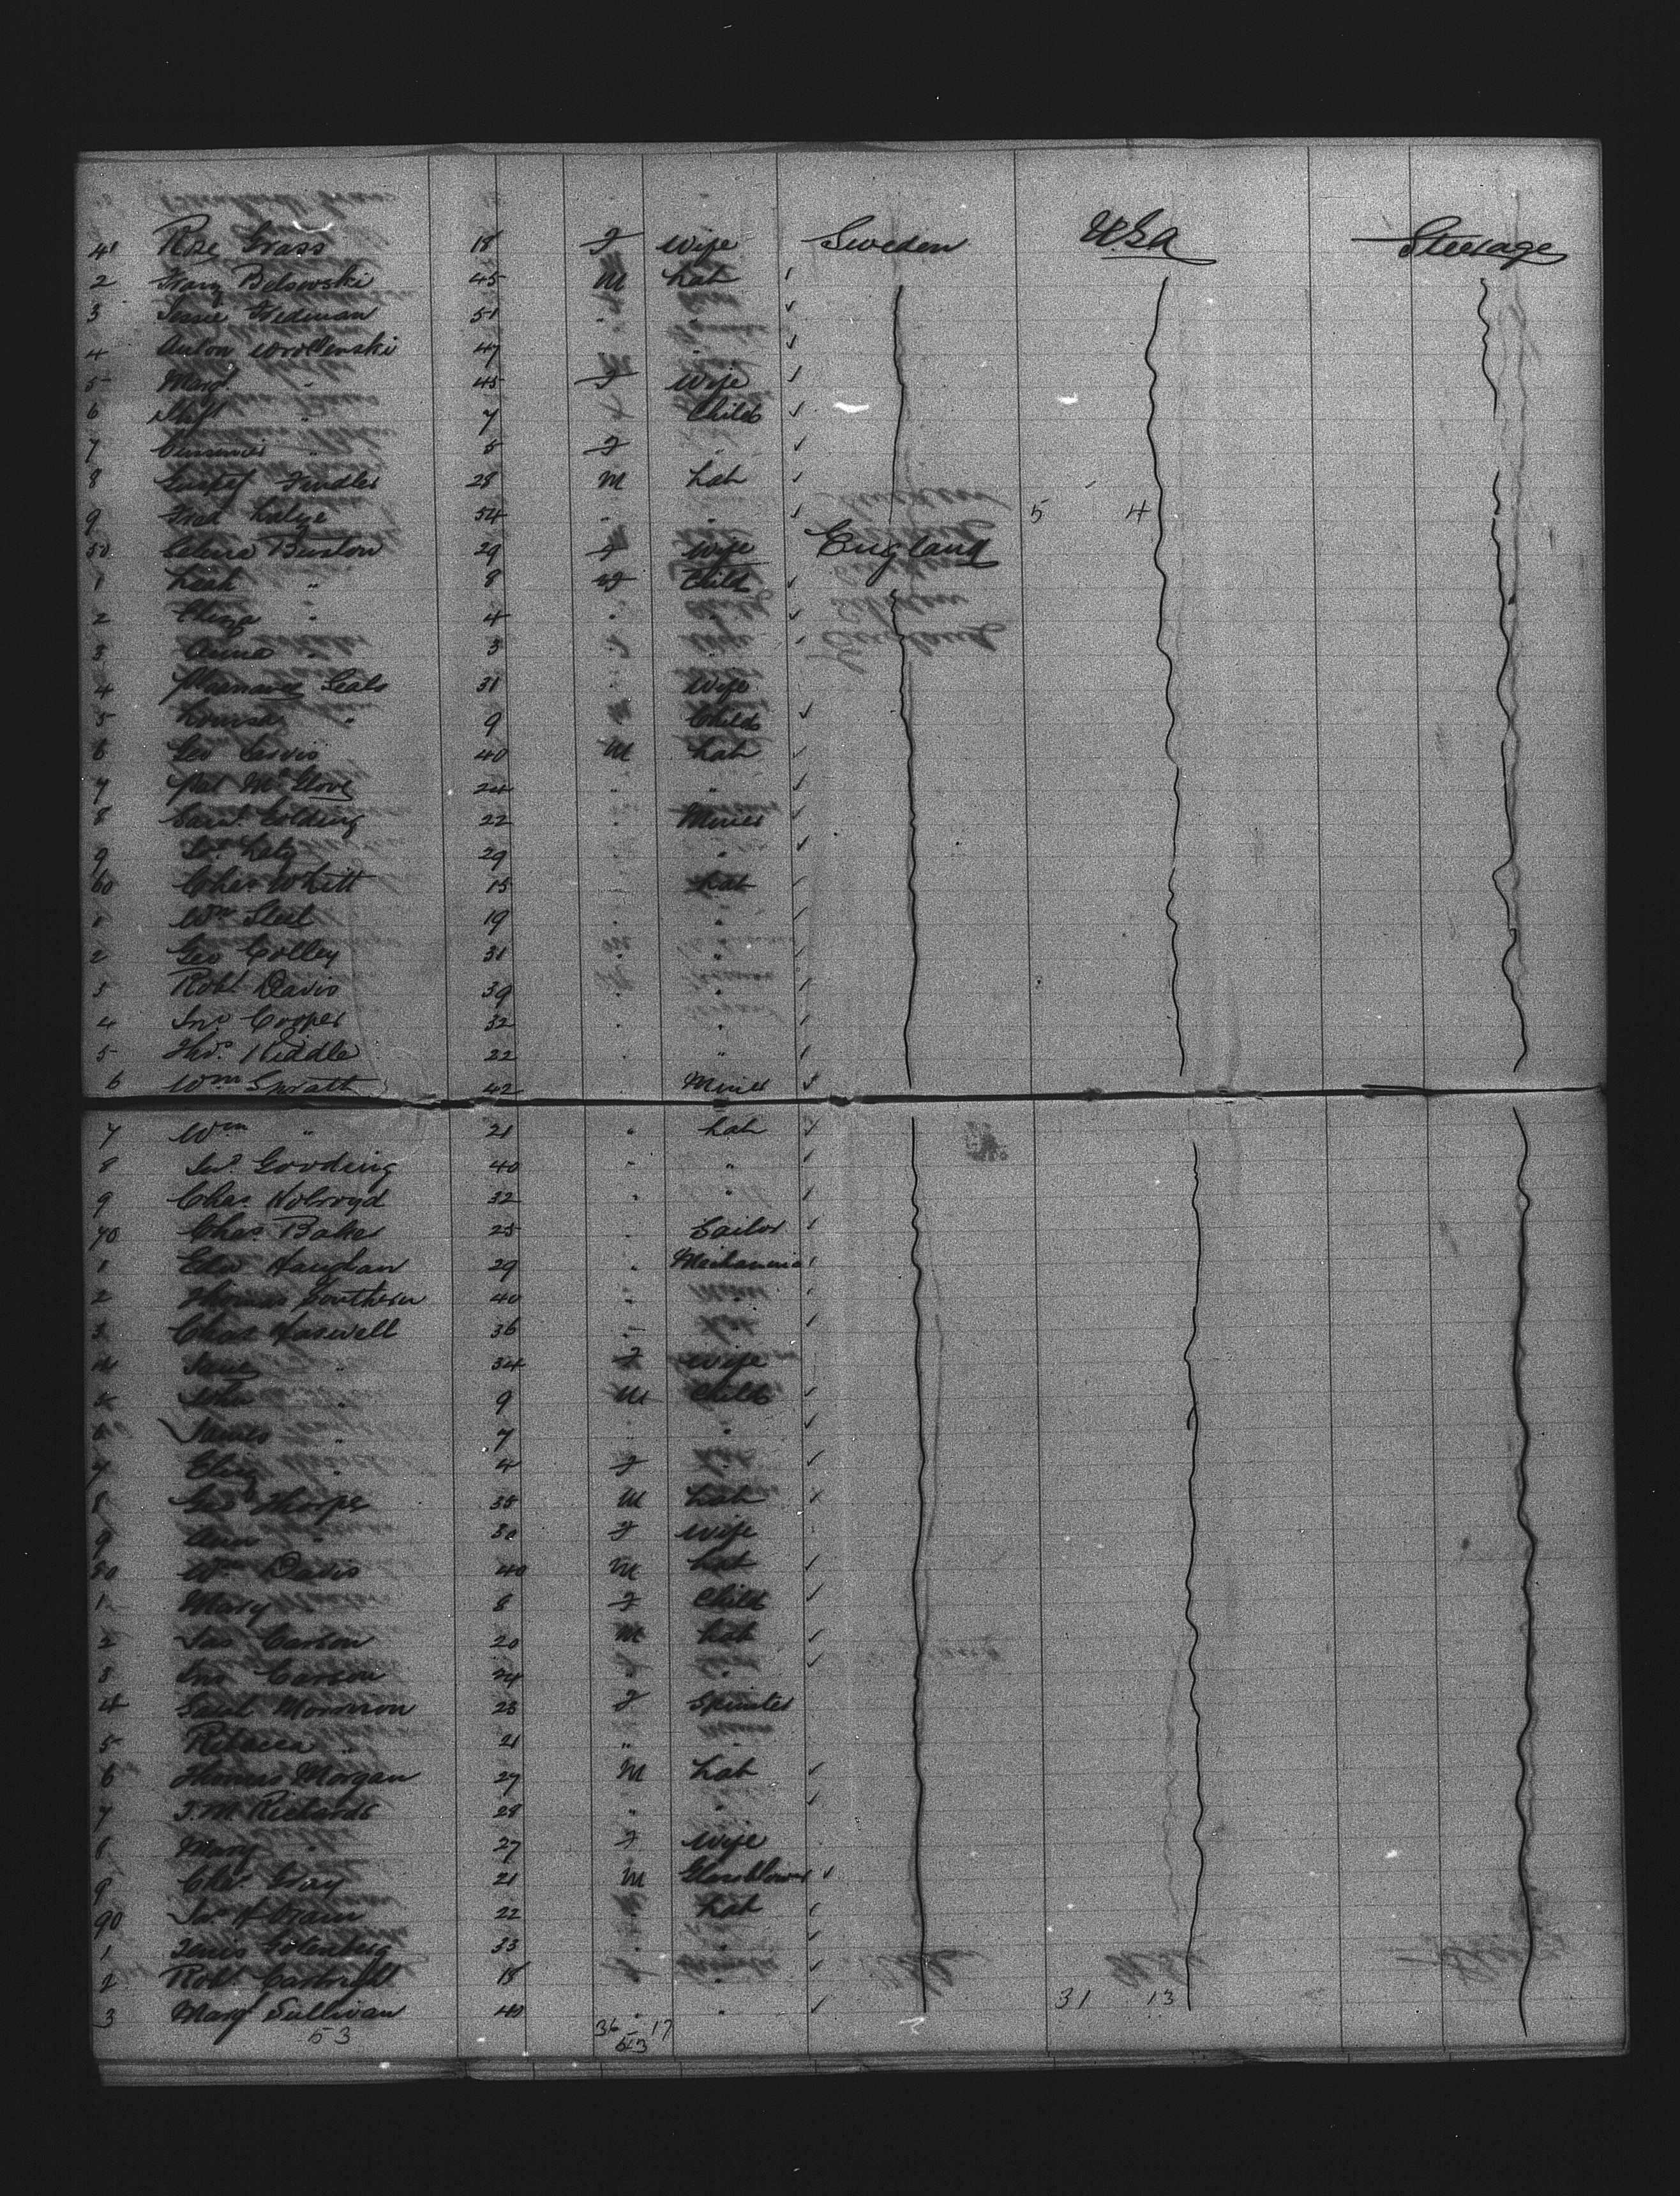 41 Rose Grass 18 F Wife Sweden USA Steerage
2 Franz 45 M Lab
3 Fredman 51 " "
4 Anton 47 "
5 Margt " 45 F Wife
6 " 7 Child
7 " 5 F "
8 28 M Lab
9 Fred 54 " " 5 4
50 Buxton 29 F Wife England
1 Leah " 8 Child
2 Eliza " 4 " "
3 Anna " 3 "
4 Seals 31 " Wife
5 Louisa " 9 Child
6 Geo 40 M Lab
7 Pat McGlove 24 " "
8 Saml Golding 22 " Miner
9 29 " "
60 Chas Whitt 15 Lab
1 Wm Steel 19 " "
2 Geo Colley 31 " "
3 Robt Davis 39 " "
4 Jno Cooper 32 " "
5 Thos Riddle 22 " "
6 Wm Spratt 42 Miner
7 Wm " 21 " Lab
8 Jno Gooding 40 " "
9 Chas Holroyd 32 " "
70 Chas Baker 25 " Sailor
1 Edw Vaughan 29 " Mechanic
2 Thomas Southern 40 " "
3 Chas Haswell 36 "
4 Jane " 34 F Wife
John " 9 M Child
James " 7 "
7 Eliza " 4 F
8 Geo Thorpe 38 M Lab
9 Ann " 30 F Wife
80 Wm Davis 40 M Lab
1 Mary 8 F Child
2 Jas Carson 20 M Lab
3 Jno Carson 24 " "
4 Sarah Morrison 23 F Spinster
5 Rebecca " 21 " "
6 Thomas Morgan 27 M Lab
7 J. M. Richards 28 " "
8 Mary " 27 F Wife
9 Chas Gray 21 M Glassblower
90 Jno 22 Lab
1 33 " "
2 Robt 18 "
3 Margt Sullivan 40 " " 31 13
53 36 17
53